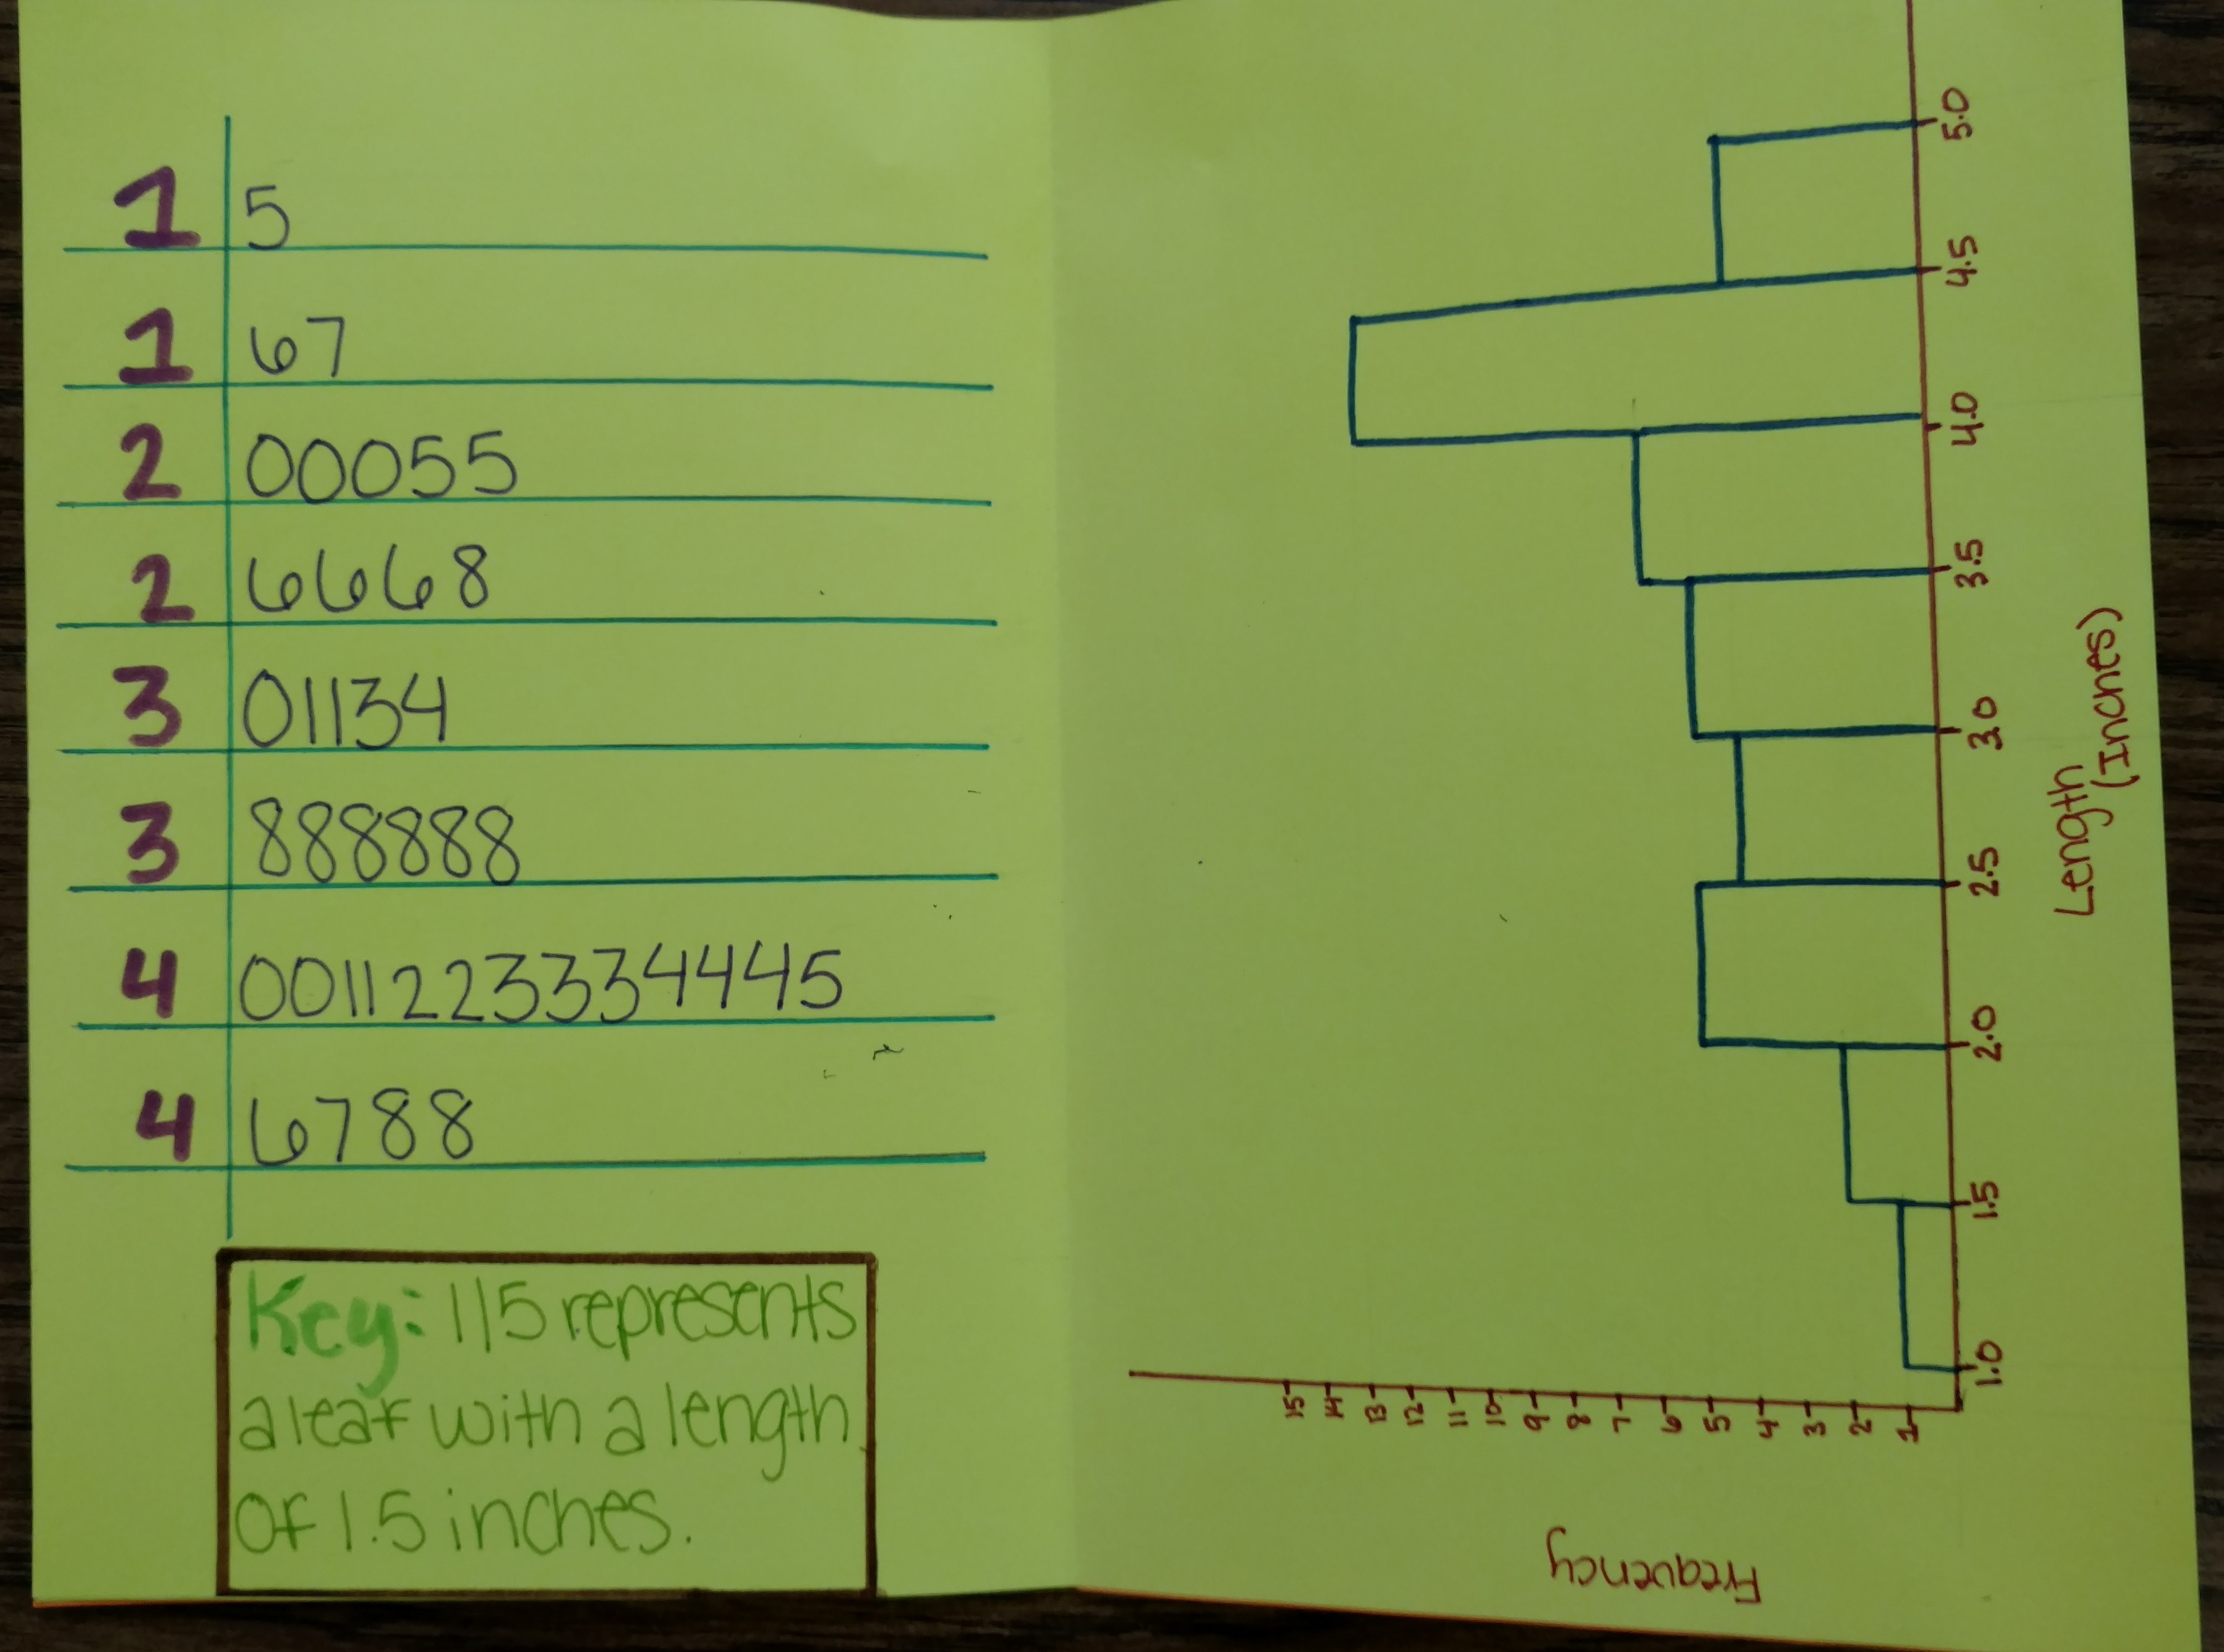 1 | 5
1 | 67
2 | 00055
2 | 6668
3 | 01134
3 | 888888
4 | 00112233344445
4 | 6788
Key: 1|5 represents
a leaf with a length
of 1.5 inches.
15 14 13 12 11 10 9 8 7 6 5 4 3 2 1
Frequency
1.0 1.5 2.0 2.5 3.0 3.5 4.0 4.5 5.0
Length
(Inches)